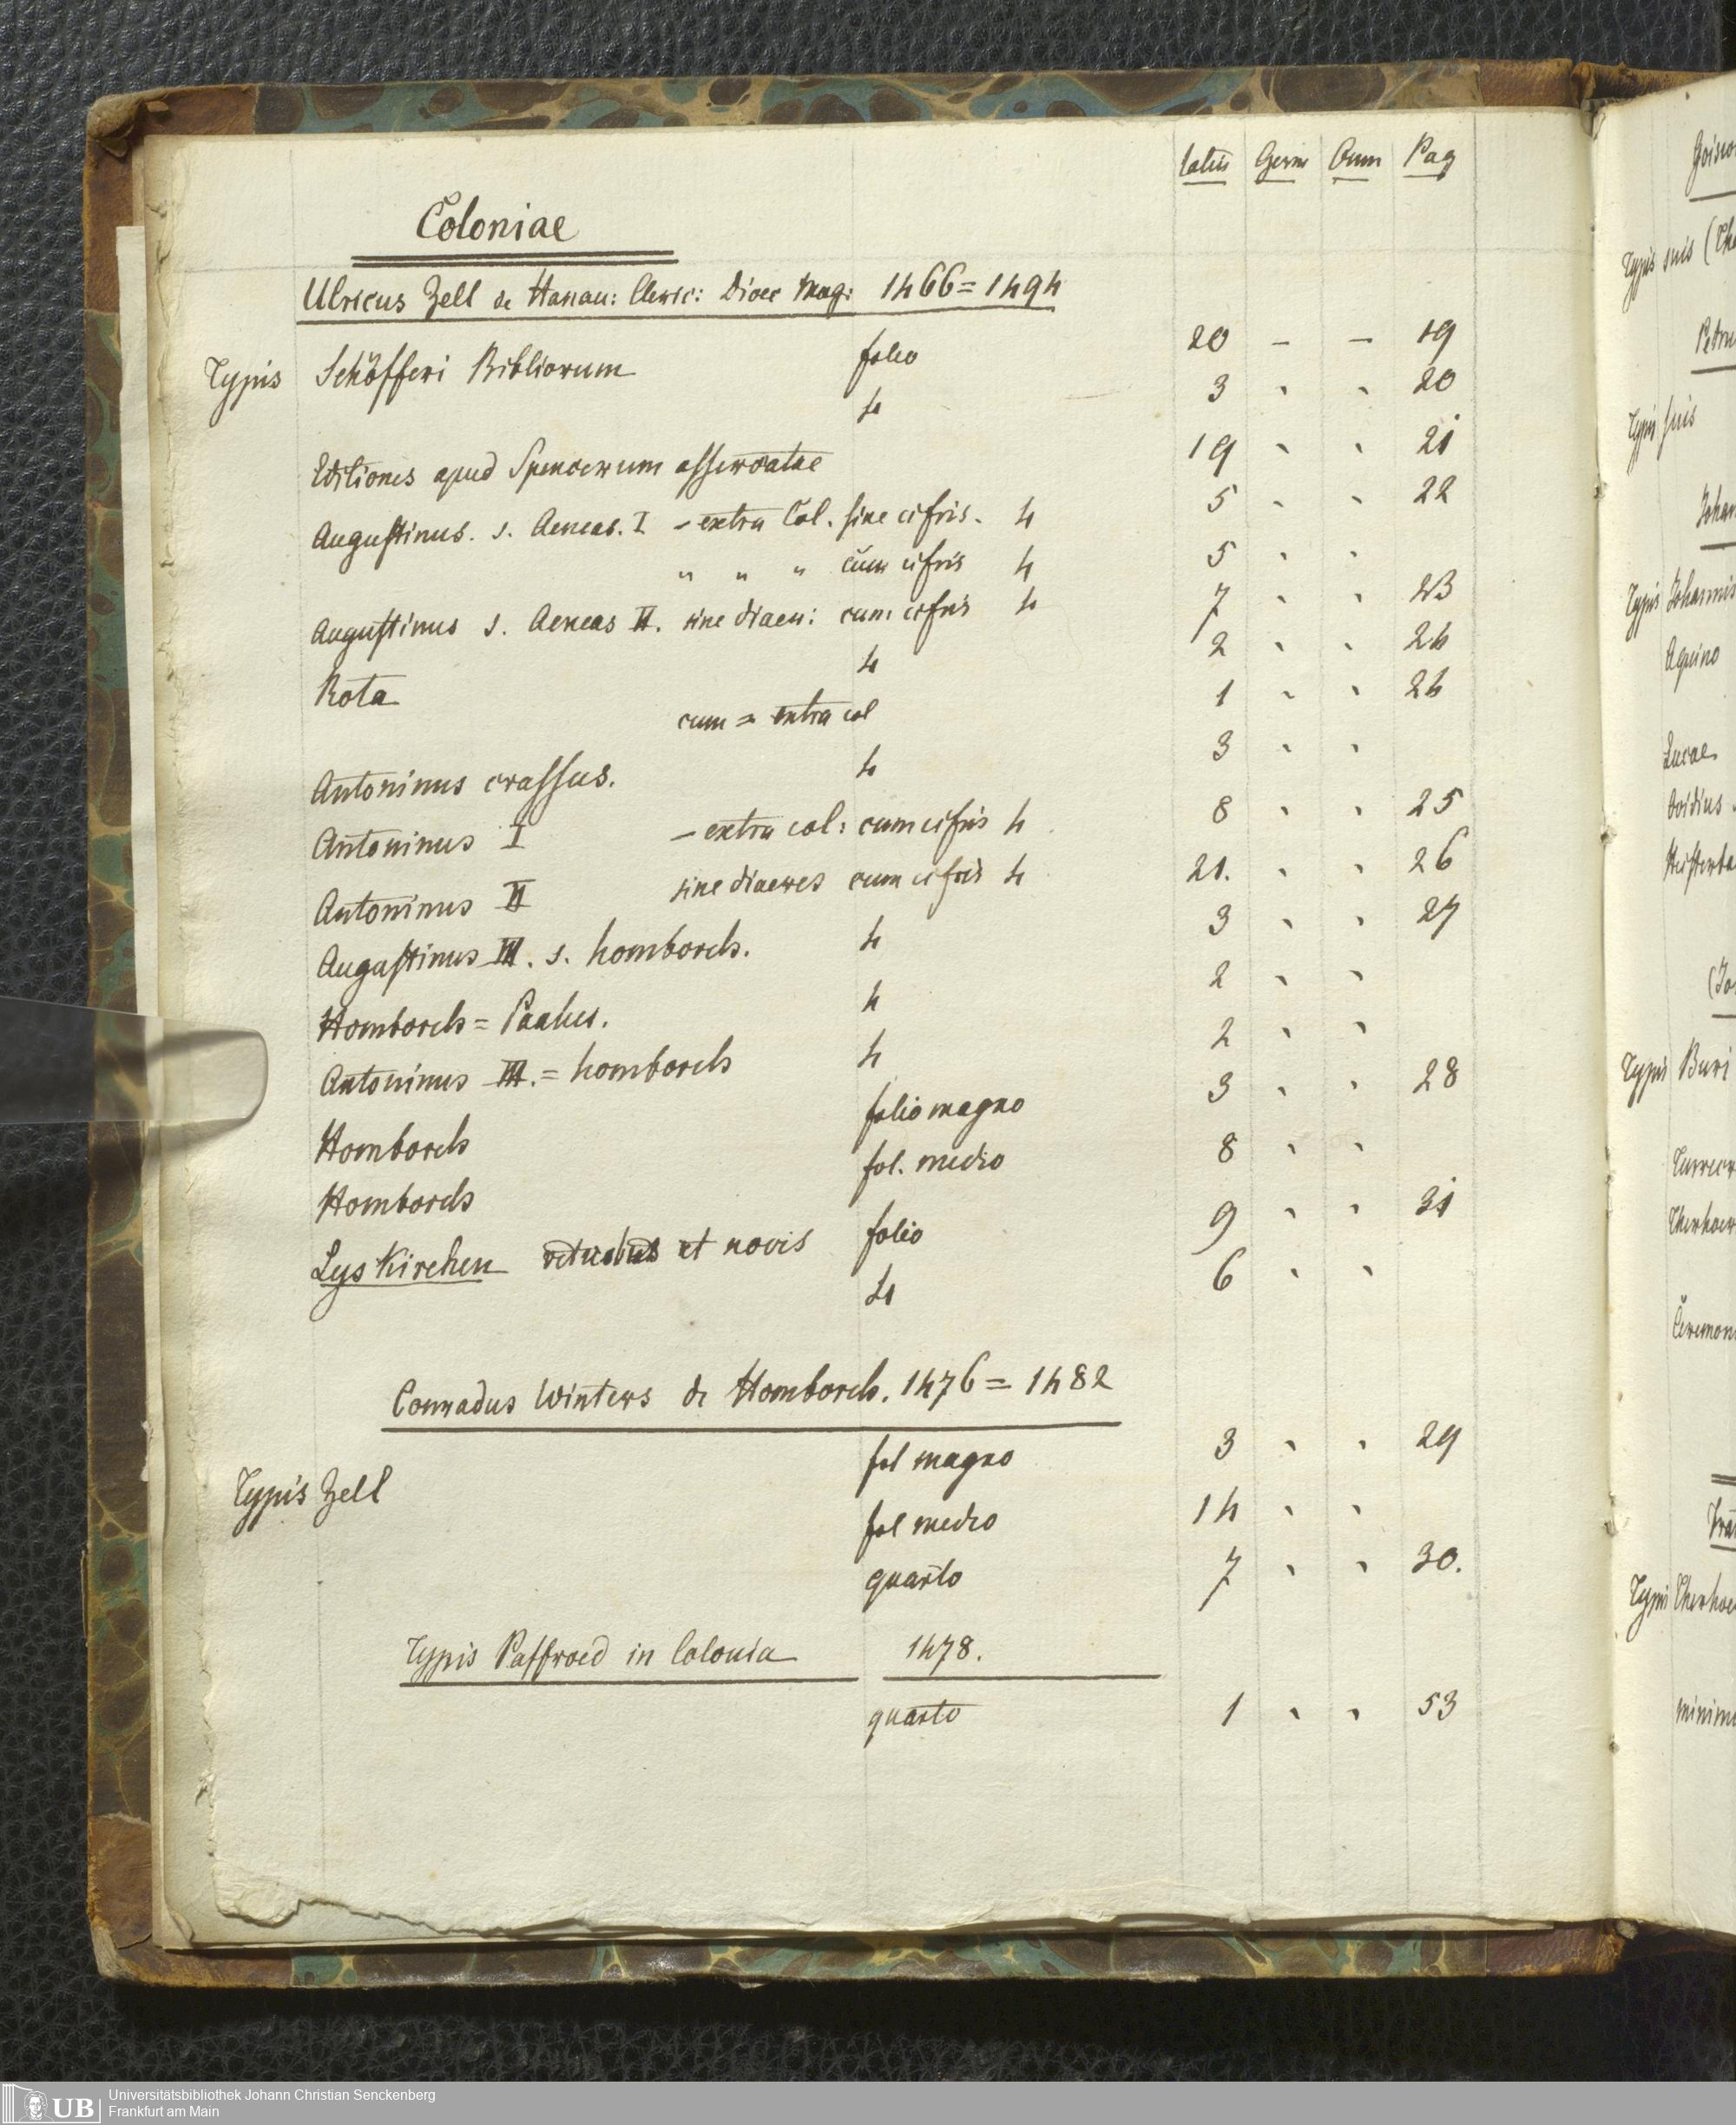 Latin Germ Cum Pag
Coloniae
Ulricus Zell de Hanau: Cleric: Dioec Mog: 1466=1494
Typis Schöfferi Bibliorum folio 20 – – 19
4 3 " " 20
Editiones apud Spencerum asservatae 19 " " 21
Augustinus. s. Aeneas. I – extra Col. sine cifris. 4 5 " " 22
" " " cum cifris 4 5 " "
Augustinus s. Aeneas II. sine diaer: cum cifris 4 7 " " 23
Rota 4 2 " " 24
cum = extra col 1 " " 24
Antoninus crassus. 4 3 " "
Antoninus I – extra col: cum cifris 4 8 " " 25
Antoninus II sine diaeres cum cifris 4 21. " " 26
Augustinus III. s. homborch. 4 3 " " 27
Homborch = Paulus. 4 2 " "
Antoninus III. = homborch 4 2 " "
Homborch folio magno 3 " " 28
Homborch fol. medio 8 " "
Lyskirchen et novis folio 9 " " 31
4 6 " "
Conradus Winters de Homborch. 1476=1482
fol magno 3 " " 29
Typis Zell
fol medio 14 " "
quarto 7 " " 30.
Typis Paffroed in Colonia 1478.
quarto 1 " " 53
Typis suis
Typis suis
Typis Johannis
Aquino
Lucae
Ovidius
Typis Buri
Typis
UB Universitätsbibliothek Johann Christian Senckenberg
Frankfurt am Main